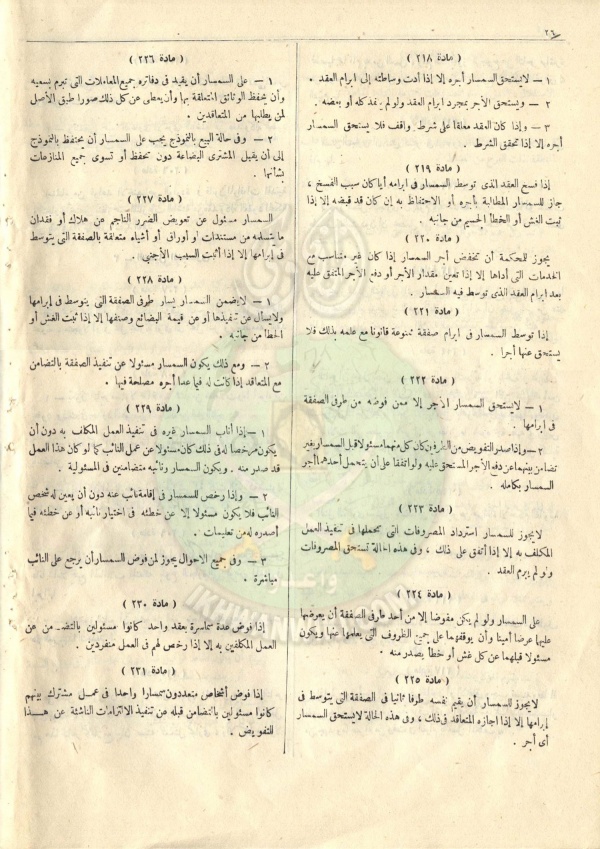 ٢٦
( مادة ٢١٨ )
١ — لا يستحق السمسار أجره إلا إذا أدت وساطته إلى ابرام العقد .
٢ — ويستحق الأجر بمجرد ابرام العقد ولو لم ينفذ كله أو بعضه .
٣ — وإذا كان العقد معلقا على شرط واقف فلا يستحق السمسار
أجره إلا إذا تحقق الشرط .
( مادة ٢١٩ )
إذا فسخ العقد الذى توسط السمسار فى ابرامه أيا كان سبب الفسخ ،
جاز للسمسار المطالبة بأجره أو الاحتفاظ به إن كان قد قبضه إلا إذا
ثبت الغش أو الخطأ الجسيم من جانبه .
( مادة ٢٢٠ )
يجوز للمحكمة أن تخفض أجر السمسار إذا كان غير متناسب مع
الخدمات التى أداها إلا إذا تعين مقدار الأجر أو دفع الأجر المتفق عليه
بعد ابرام العقد الذى توسط فيه السمسار .
( مادة ٢٢١ )
إذا توسط السمسار فى ابرام صفقة ممنوعة قانونا مع علمه بذلك فلا
يستحق عنها أجرا .
( مادة ٢٢٢ )
١ — لا يستحق السمسار الأجر إلا ممن فوضه من طرفى الصفقة
فى ابرامها .
٢ — وإذا صدر التفويض من الطرفين كان كل منهما مسئولا قبل السمسار بغير
تضامن بينهما عن دفع الأجر المستحق عليه ولو اتفقا على أن يتحمل أحدهما أجر
السمسار بكامله .
( مادة ٢٢٣ )
لا يجوز للسمسار استرداد المصروفات التى يتحملها فى تنفيذ العمل
المكلف به إلا إذا أتفق على ذلك ، وفى هذه الحالة تستحق المصروفات
ولو لم يبرم العقد .
( مادة ٢٢٤ )
على السمسار ولو لم يكن مفوضا إلا من أحد طرفى الصفقة أن يعرضها
عليهما عرضا أمينا وأن يوقفهما على جميع الظروف التى يعلمها عنها ويكون
مسئولا قبلهما عن كل غش أو خطأ يصدر منه .
( مادة ٢٢٥ )
لا يجوز للسمسار أن يقيم نفسه طرفا ثانيا فى الصفقة التى يتوسط فى
إبرامها إلا إذا اجازه المتعاقد فى ذلك ، وفى هذه الحالة لا يستحق السمسار
أى أجر .
( مادة ٢٢٦ )
١ — على السمسار أن يقيد فى دفاتره جميع المعاملات التى تبرم بسعيه
وأن يحفظ الوثائق المتعلقة بها وأن يعطى عن كل ذلك صورا طبق الأصل
لمن يطلبها من المتعاقدين .
٢ — وفى حالة البيع بالنموذج يجب على السمسار أن يحتفظ بالنموذج
إلى أن يقبل المشترى البضاعة دون تحفظ أو تسوى جميع المنازعات
بشأنها .
( مادة ٢٢٧ )
السمسار مسئول عن تعويض الضرر الناجم عن هلاك أو فقدان
ما يتسلمه من مستندات أو أوراق أو أشياء متعلقة بالصفقة التى يتوسط
فى إبرامها إلا إذا أثبت السبب الأجنبى .
( مادة ٢٢٨ )
١ — لا يضمن السمسار يسار طرفى الصفقة التى يتوسط فى إبرامها
ولا يسأل عن تنفيذها أو عن قيمة البضائع وصنفها إلا إذا ثبت الغش أو
الخطأ من جانبه .
٢ — ومع ذلك يكون السمسار مسئولا عن تنفيذ الصفقة بالتضامن
مع المتعاقد إذا كانت له فيما عدا أجره مصلحة فيها .
( مادة ٢٢٩ )
١ — إذا أناب السمسار غيره فى تنفيذ العمل المكلف به دون أن
يكون مرخصا له فى ذلك كان مسئولا عن عمل النائب كما لو كان هذا العمل
قد صدر منه . ويكون السمسار ونائبه متضامنين فى المسئولية .
٢ — وإذا رخص للسمسار فى إقامة نائب عنه دون أن يعين له شخص
النائب فلا يكون مسئولا إلا عن خطئه فى اختيار نائبه أو عن خطئه فيما
أصدره له من تعليمات .
٣ — وفى جميع الاحوال يجوز لمن فوض السمسار أن يرجع على النائب
مباشرة .
( مادة ٢٣٠ )
إذا فوض عدة سماسرة بعقد واحد كانوا مسئولين بالتضامن عن
العمل المكلفين به إلا إذا رخص لهم فى العمل منفردين .
( مادة ٢٣١ )
إذا فوض أشخاص متعددون سمسارا واحدا فى عمل مشترك بينهم
كانوا مسئولين بالتضامن قبله عن تنفيذ الالتزامات الناشئة عن هذا
التفويض .